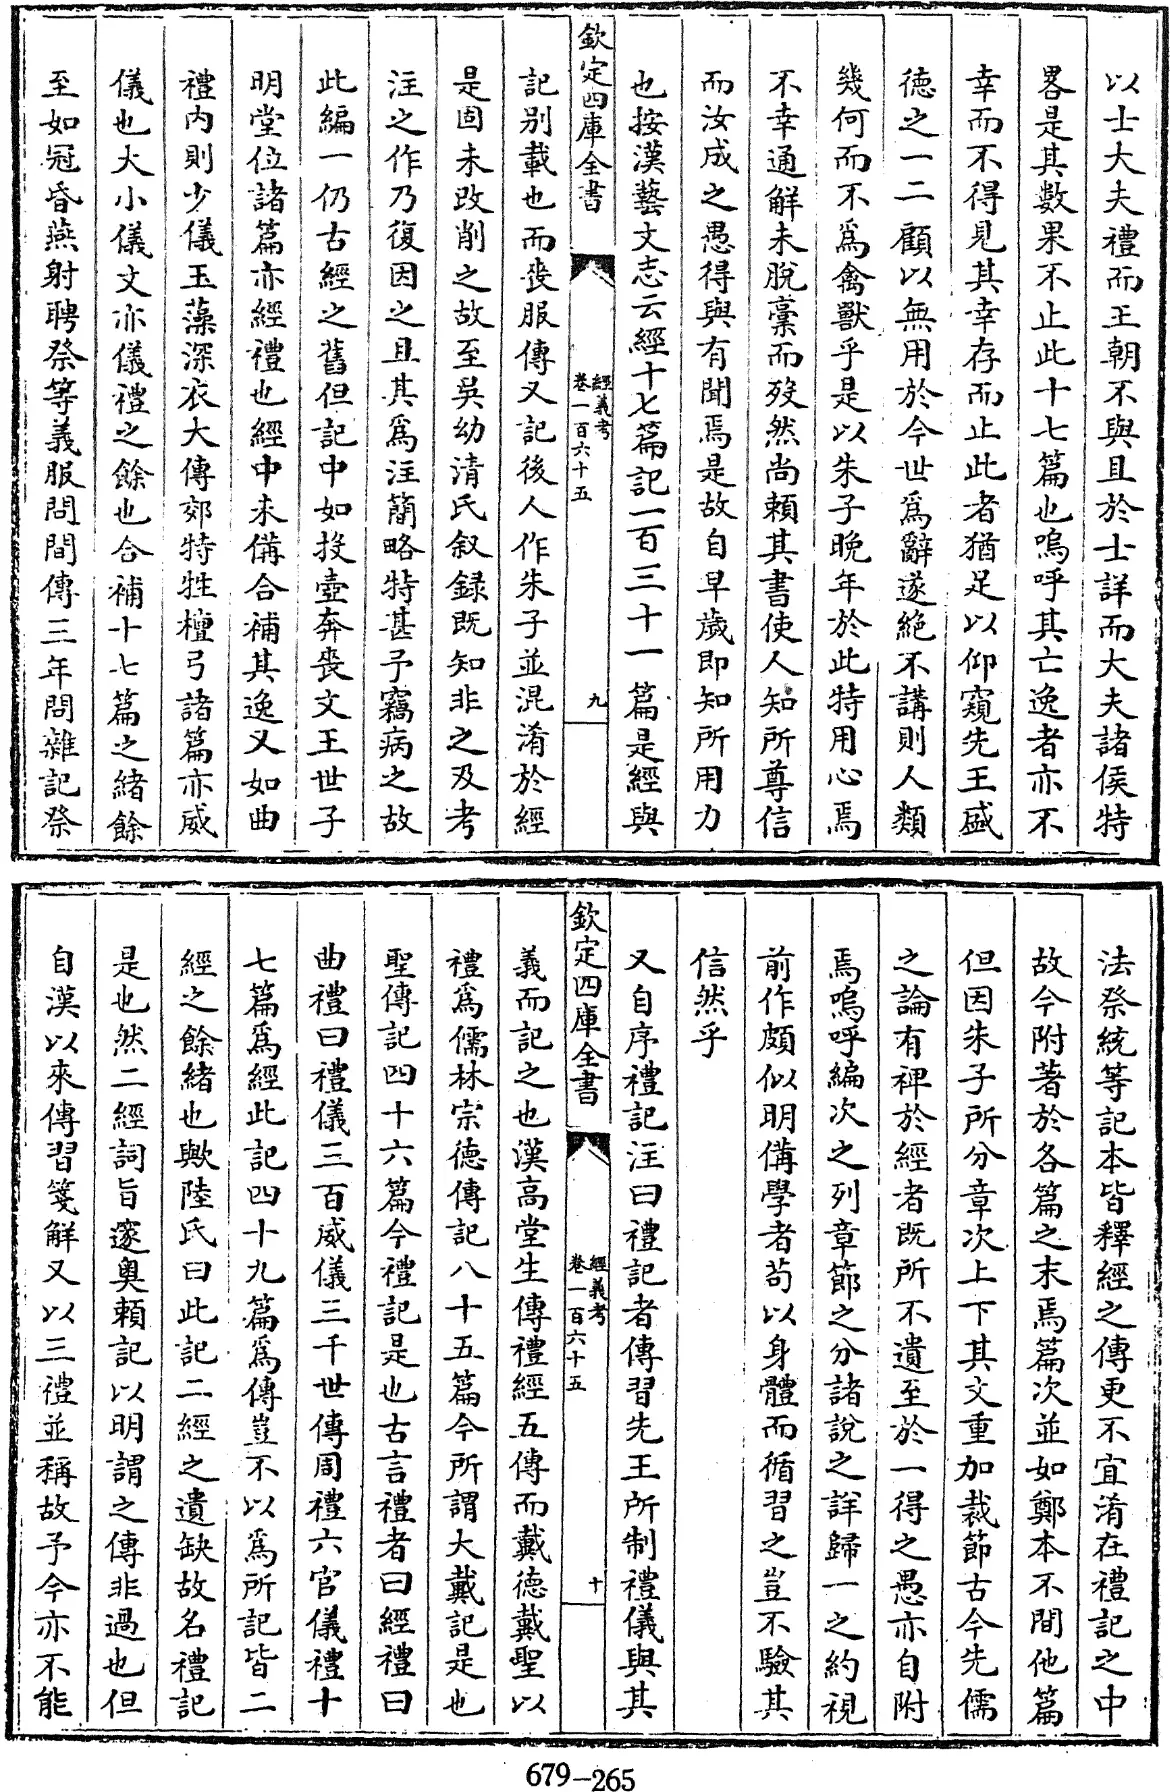 以士大夫禮而王朝不與且於士詳而大夫諸侯特
畧是其數果不止此十七篇也嗚呼其亡逸者亦不
幸而不得見其幸存而止此者猶足以仰窺先王盛
德之一二顧以無用於今世爲辭遂絶不講則人類
幾何而不爲禽獸乎是以朱子晚年於此特用心焉
不幸通解未脫藁而歿然尚頼其書使人知所尊信
而汝成之愚得與有聞焉是故自早歲即知所用力
也按漢藝文志云經十七篇記一百三十一篇是經與
欽定四庫全書
經義考
卷一百六十五
九
記別載也而喪服傳又記後人作朱子並混淆於經
是固未改削之故至吳幼清氏叙録既知非之及考
注之作乃復因之且其爲注簡略特甚予竊病之故
此編一仍古經之舊但記中如投壺奔喪文王世子
明堂位諸篇亦經禮也經中未備合補其逸又如曲
禮内則少儀玉藻深衣大傳郊特牲檀弓諸篇亦威
儀也大小儀文亦儀禮之餘也合補十七篇之緒餘
至如冠昏燕射聘祭等義服問間傳三年問雜記祭
法祭統等記本皆釋經之傳更不宜淆在禮記之中
故今附著於各篇之末焉篇次並如鄭本不間他篇
但因朱子所分章次上下其文重加裁節古今先儒
之論有裨於經者既所不遺至於一得之愚亦自附
焉嗚呼編次之列章節之分諸說之詳歸一之約視
前作頗似明備學者茍以身體而循習之豈不驗其
信然乎
又自序禮記注曰禮記者傳習先王所制禮儀與其
欽定四庫全書
經義考
卷一百六十五
十
義而記之也漢高堂生傳禮經五傳而戴德戴聖以
禮爲儒林宗德傳記八十五篇今所謂大戴記是也
聖傳記四十六篇今禮記是也古言禮者曰經禮曰
曲禮曰禮儀三百威儀三千世傳周禮六官儀禮十
七篇爲經此記四十九篇爲傳豈不以爲所記皆二
經之餘緒也歟陸氏曰此記二經之遺缺故名禮記
是也然二經詞旨邃奥頼記以明謂之傳非過也但
自漢以來傳習箋解又以三禮並稱故予今亦不能
679-265